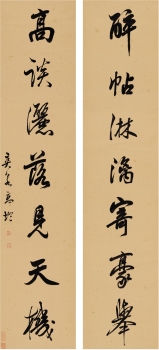 醉帖淋漓寄豪舉
高談灑落見天機